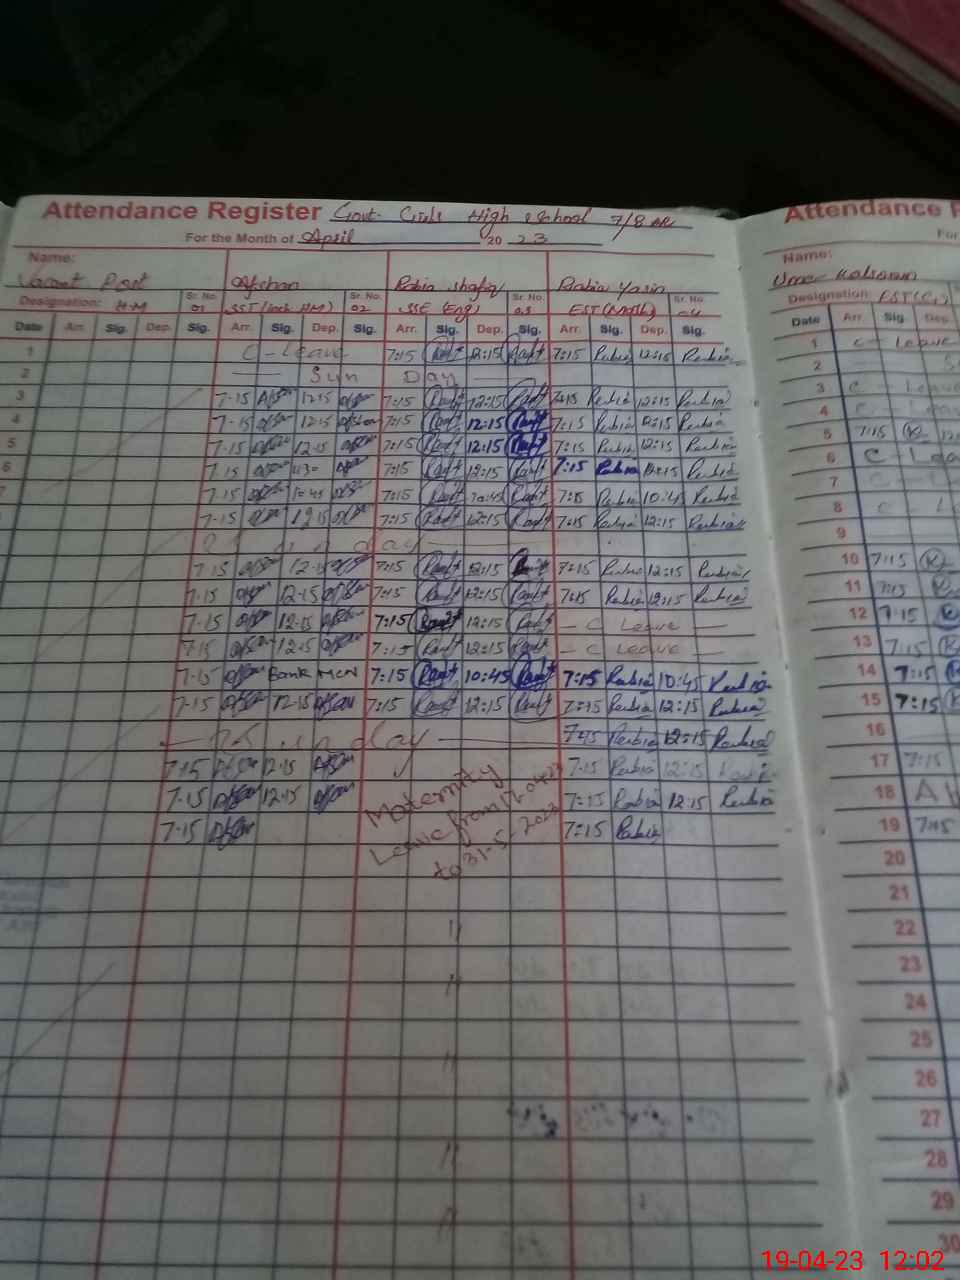 Attendance Register Govt. Girls High School 7/8 AR
For the Month of April 2023
Name:
Vacant Post Afshan Rabia Shafiq Rabia Yasin
Designation: H.M Sr. No. 01 SST (Inch HM) Sr. No. 02 SSE (Eng) Sr. No. 03 EST (Math) Sr. No. 04
Date Arr. Sig. Dep. Sig. Arr. Sig. Dep. Sig. Arr. Sig. Dep. Sig. Arr. Sig. Dep. Sig.
1 C-Leave 7:15 12:15 7:15 Rabia 12:15 Rabia
2 Sun Day
3 7-15 Afshan 12:15 Afshan 7:15 12:15 7:15 Rabia 12:15 Rabia
4 7-15 Afshan 12:15 Afshan 7:15 12:15 7:15 Rabia 12:15 Rabia
5 7-15 Afshan 12:15 Afshan 7:15 12:15 7:15 Rabia 12:15 Rabia
6 7-15 Afshan Afshan 7:15 12:15 7:15 Rabia 12:15 Rabia
7 7-15 Afshan 10:45 Afshan 7:15 10:45 7:15 Rabia 10:45 Rabia
7-15 Afshan 12:15 Afshan 7:15 12:15 7:15 Rabia 12:15 Rabia
Sunday
7-15 Afshan 12-15 Afshan 7:15 12:15 7:15 Rabia 12:15 Rabia
7-15 Afshan 12-15 Afshan 7:15 12:15 7:15 Rabia 12:15 Rabia
7-15 Afshan 12-15 Afshan 7:15 12:15 - C Leave -
7-15 Afshan 12-15 Afshan 7:15 12:15 - C Leave -
7-15 Afshan Bank 7:15 10:45 7:15 Rabia 10:45 Rabia
7-15 Afshan 12-15 Afshan 7:15 12:15 7:15 Rabia 12:15 Rabia
Sunday 7:15 Rabia 12:15 Rabia
7:15 Afshan 12-15 Afshan 7:15 Rabia 12:15 Rabia
7-15 Afshan 12-15 Afshan 7:15 Rabia 12:15 Rabia
7-15 Afshan 7:15 Rabia
Maternity
Leave from
to 31-5-2023
"
"
"
"
"
Attendance R
For
Name:
Ume Kalsoom
Designation: EST (C.)
Date Arr. Sig. Dep.
1 C - Leave
2 S
3 C - Leave
4 C - Lea
5 7:15 12
6 C - Lea
7 C - L
8 C - L
9
10 7:15
11 7:15
12 7:15
13 7:15
14 7:15
15 7:15
16
17 7:15
18
19 7:15
20
21
22
23
24
25
26
27
28
29
30
19-04-23 12:02